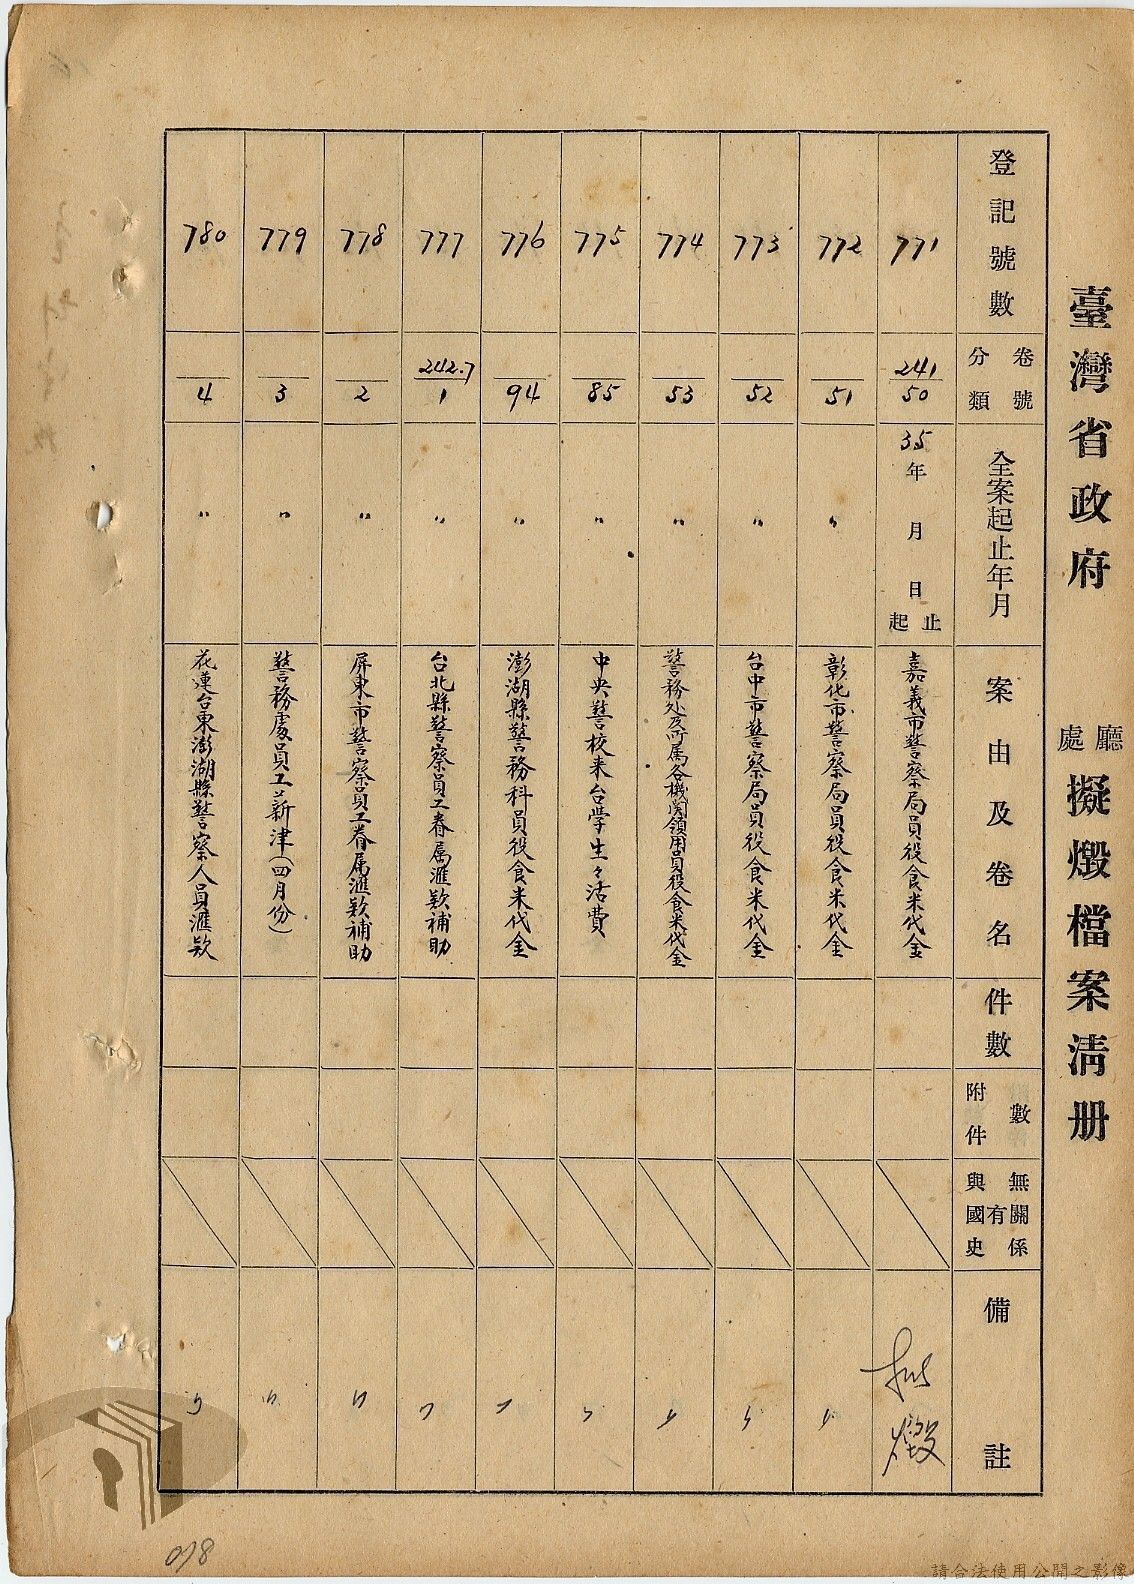 臺灣省政府 廳處 擬燬檔案清册
登記號數
卷號分類
全案起止年月
案由及卷名
件數
附件數
與國史有無關係
備註
771
241
50
35年月日起止
嘉義市警察局員役食米代金
拟燬
772
51
〃
彰化市警察局員役食米代金
〃
773
52
〃
台中市警察局員役食米代金
〃
774
53
〃
警務处及所属各機関領用員役食米代金
〃
775
85
〃
中央警校来台學生々活費
〃
776
94
〃
澎湖縣警務科員役食米代金
〃
777
242.7
1
〃
台北縣警察員工眷属滙欵補助
〃
778
2
〃
屏東市警察員工眷属滙欵補助
〃
779
3
〃
警務處員工薪津(四月份)
〃
780
4
〃
花蓮台東澎湖縣警察人員滙欵
〃
018
請合法使用公開之影像